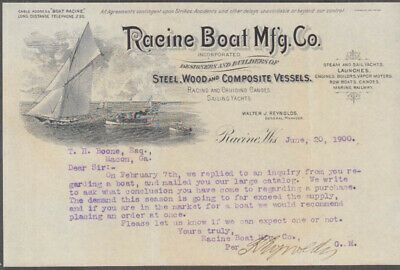 CABLE ADDRESS "BOAT RACINE"
LONG DISTANCE TELEPHONE 230.
All Agreements contingent upon Strikes, Accidents and other delays unavoidable or beyond our control.
Racine Boat Mfg. Co.
INCORPORATED
DESIGNERS AND BUILDERS OF
STEEL, WOOD AND COMPOSITE VESSELS.
RACING AND CRUISING CANOES
SAILING YACHTS
STEAM AND SAIL YACHTS,
LAUNCHES,
ENGINES, BOILERS, VAPOR MOTORS,
ROW BOATS, CANOES,
MARINE RAILWAY.
WALTER J. REYNOLDS,
GENERAL MANAGER.
Racine, Wis June, 20, 1900.
T. H. Boone, Esq.,
Macon, Ga.
Dear Sir:-
On February 7th, we replied to an inquiry from you re-
garding a boat, and mailed you our large catalog. We write
to ask what conclusion you have come to regarding a purchase.
The demand this season is going to far exceed the supply,
and if you are in the market for a boat we would recommend
placing an order at once.
Please let us know if we can expect one or not.
Yours truly,
Racine Boat Mfg Co.,
Per G. H.